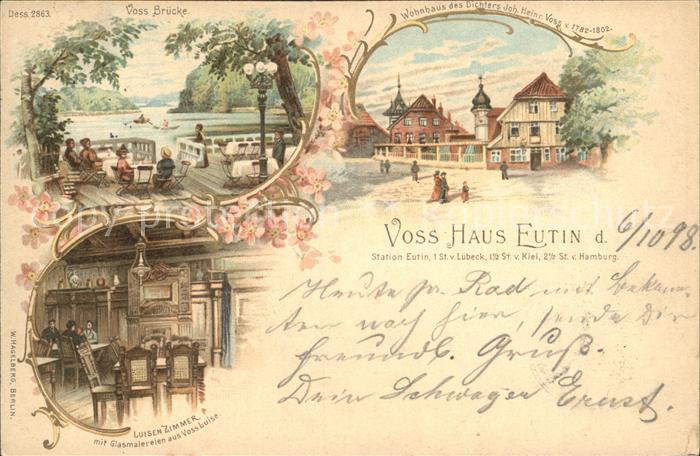 Dess. 2863.
Voss Brücke.
Wohnhaus des Dichters Joh. Heinr. Voss v. 1782-1802.
VOSS HAUS EUTIN d. 6/10 98.
Station Eutin, 1 St. v. Lübeck, 1½ St v. Kiel, 2½ St. v. Hamburg.
Heute pr. Rad mit Bekann-
ten nach hier, sende Dir
freundl. Gruß.
Dein Schwager Ernst.
LUISEN ZIMMER
mit Glasmalereien aus Voss Luise.
W. HAGELBERG, BERLIN.